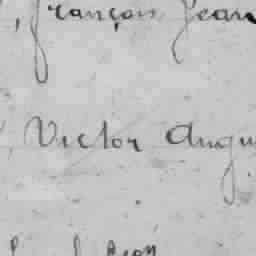 , françois Jean
Victor Augu